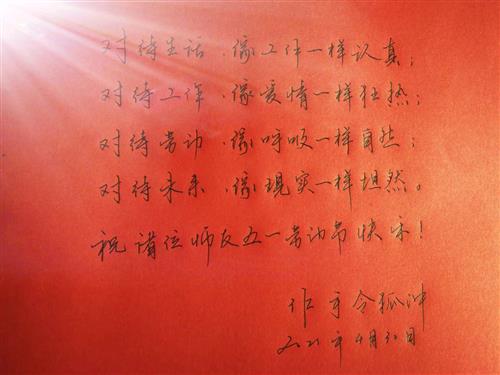 对待生活，像工作一样认真；
对待工作，像爱情一样狂热；
对待劳动，像呼吸一样自然；
对待未来，像现实一样坦然。
祝诸位师友五一劳动节快乐！
令狐冲
2021年4月30日